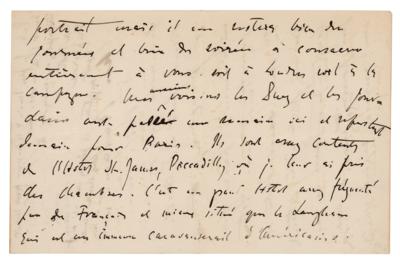 portrait mais il me restera bien des
journées et bien des soirées à consacrer
entièrement à vous soit à Londres soit à la
campagne. Nos amis
dains ont passé une semaine ici et repartent
demain pour Paris. Ils sont assez contents
de l'Hotel St. James, Piccadilly, où je leur ai pris
des chambres. C'est un petit Hotel assez fréquenté
par des Français et mieux situé que le Langham
qui est un immense caravansérail d'Américains.